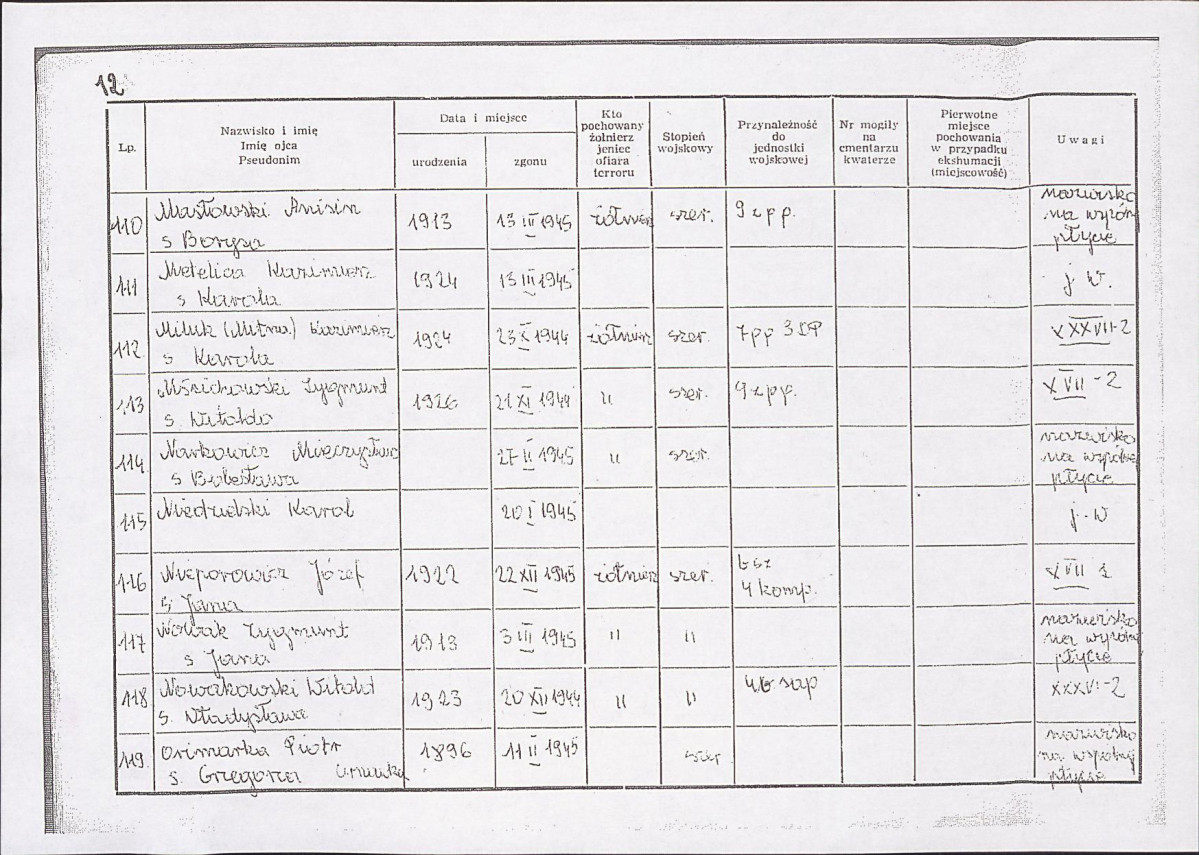 12
Lp.
Nazwisko i imię
Imię ojca
Pseudonim
Data i miejsce
urodzenia
zgonu
Kto
pochowany
żołnierz
jeniec
ofiara
terroru
Stopień
wojskowy
Przynależność
do
jednostki
wojskowej
Nr mogiły
na
cmentarzu
kwaterze
Pierwotne
miejsce
pochowania
w przypadku
ekshumacji
(miejscowość)
Uwagi
110 Masłowski Anisin 1913 13 III 1945 żołnierz szer. 9 z pp. nazwisko
s Borysa na wspón
płycie
111 Metelica Kazimierz 1924 13 III 1945 j. w.
s Karola
112. Miluk (Mitna) Kazimierz 1924 23 X 1944 żołnierz szer. 7 pp 3 DP XXXVII-2
s Karola
113 Mścichowski Zygmunt 1926 21 XI 1944 " szer. 9 z pp. XVII-2
s. Witolda
114. Narkowicz Mieczysław 27 II 1945 " szer. nazwisko
s Bolesława na wspólnej
płycie
115 Niedzielski Karol 20 I 1945 j. w
116 Nieporowicz Józef 1922 22 XII 1945 żołnierz szer. b sz XVII 1
s Jana 4 komp.
117 Nowak Zygmunt 1913 3 III 1945 " " nazwisko
s Jana na wspólne
płycie
118 Nowakowski Witold 1923 20 XII 1944 " " 4 b sap XXXVI-2
s. Władysława
119. Orimarka Piotr 1896 11 II 1945 szer nazwisko
s. Grzegorza na wspólnej
płycie